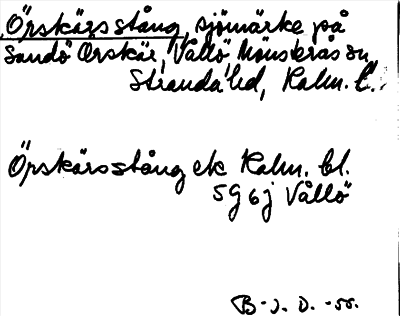 Örskärsstång, sjömärke på
Sandö Örskär, Vållö, Mönsterås sn,
Stranda hd, Kalm. l.
Örskärsstång ek Kalm. bl.
5G 6j Vållö
B-J. D. -55.